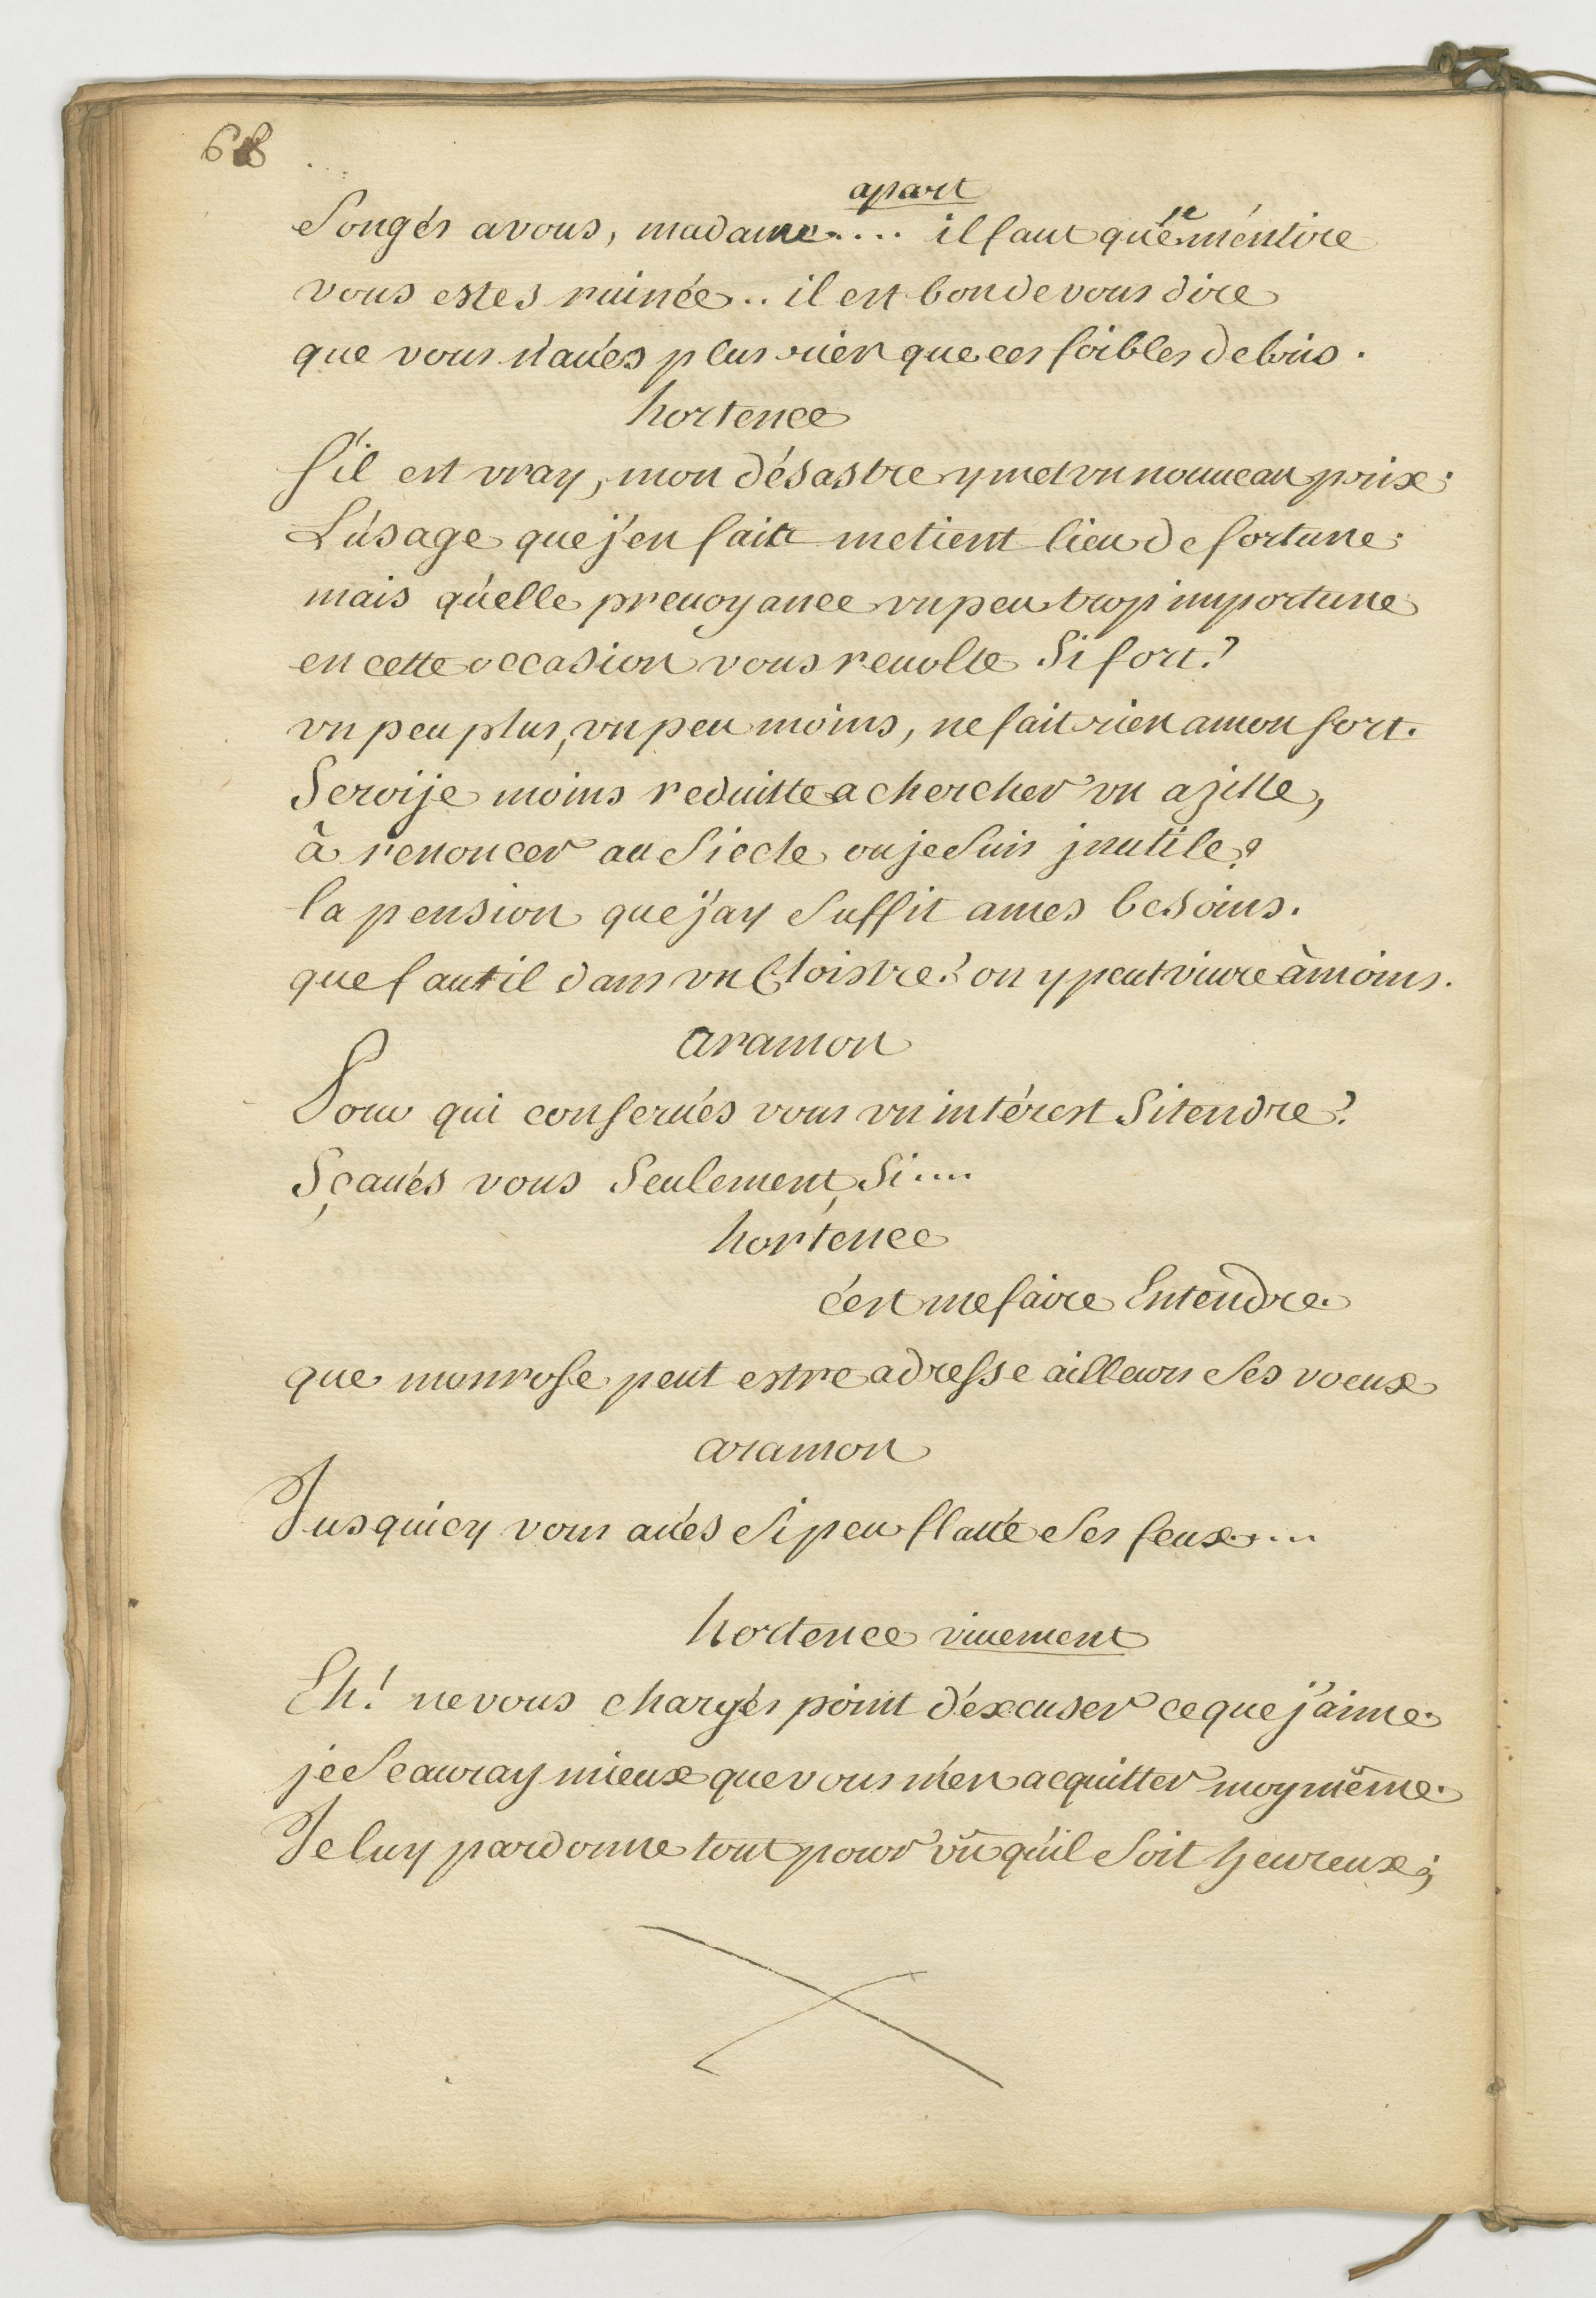 68
apart
Songés a vous, madame.... il faut que je m'en tire
vous estes ruinée.. il est bon de vous dire
que vous n'aués plus rien que ces foibles debris.
hortence
S'il est vray, mon désastre y met vn nouueau prix:
L'usage que j'en fais me tient lieu de fortune:
mais qu'elle preuoyance vn peu trop importune
en cette occasion vous reuolte Si fort?
vn peu plus, vn peu moins, ne fait rien a mon sort.
Seroije moins reduitte a chercher vn azille,
à renoncer au Siecle ou je Suis jnutile?
la pension que j'ay Suffit a mes besoins.
que faut il dans vn Cloistre? on y peut viure à moins.
aramon
Pour qui conserués vous vn intérest Si tendre?
Sçaués vous Seulement, Si....
hortence
c'est me faire Entendre.
que monrose peut estre adresse ailleurs Ses voeux
aramon
Jusquicy vous aués Si peu flatté Ses feux....
hortence viuement
Eh! ne vous chargés point d'excuser ce que j'aime.
je Scauray mieux que vous m'en acquitter moy même.
Je luy pardonne tout pour vû qu'il Soit heureux;